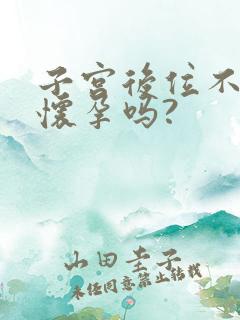 子宫後位不
懷孕吗?
山田圭子
未经同意禁止转载